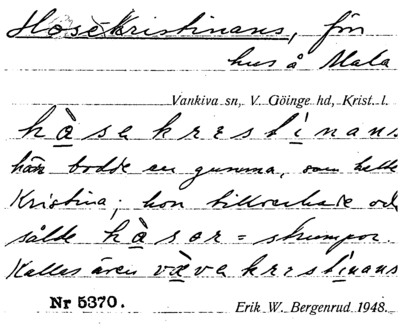 Hosekristinans, förr
hus å Mala
Vankiva sn, V. Göinge hd, Krist. l.
hàsekrestinans
här bodde en gumma, som hette
Kristina; hon tillverkade och
sålde hàsor = strumpor.
Kallas även vàvakrestinans
Nr 5370. Erik W. Bergenrud 1948.